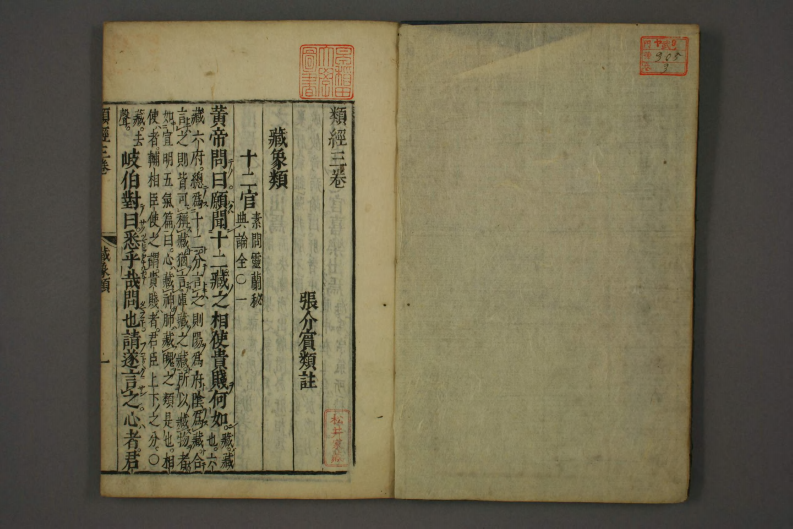 類經三卷
張介賓類註
藏象類
十二官 素問靈蘭秘
典論全○一
黃帝問曰願聞十二藏之相使貴賤何如 藏藏也六
藏六府總爲十二分言之則陽爲府陰爲藏合
言之則皆可稱藏猶言庫藏之藏所以藏物者
如宣明五氣篇曰心藏神肺藏魄之類是也相
使者輔相臣使之謂貴賤者君臣上下之分○
藏去
聲 岐伯對曰悉乎哉問也請遂言之心者君
類經三卷
藏象類
一